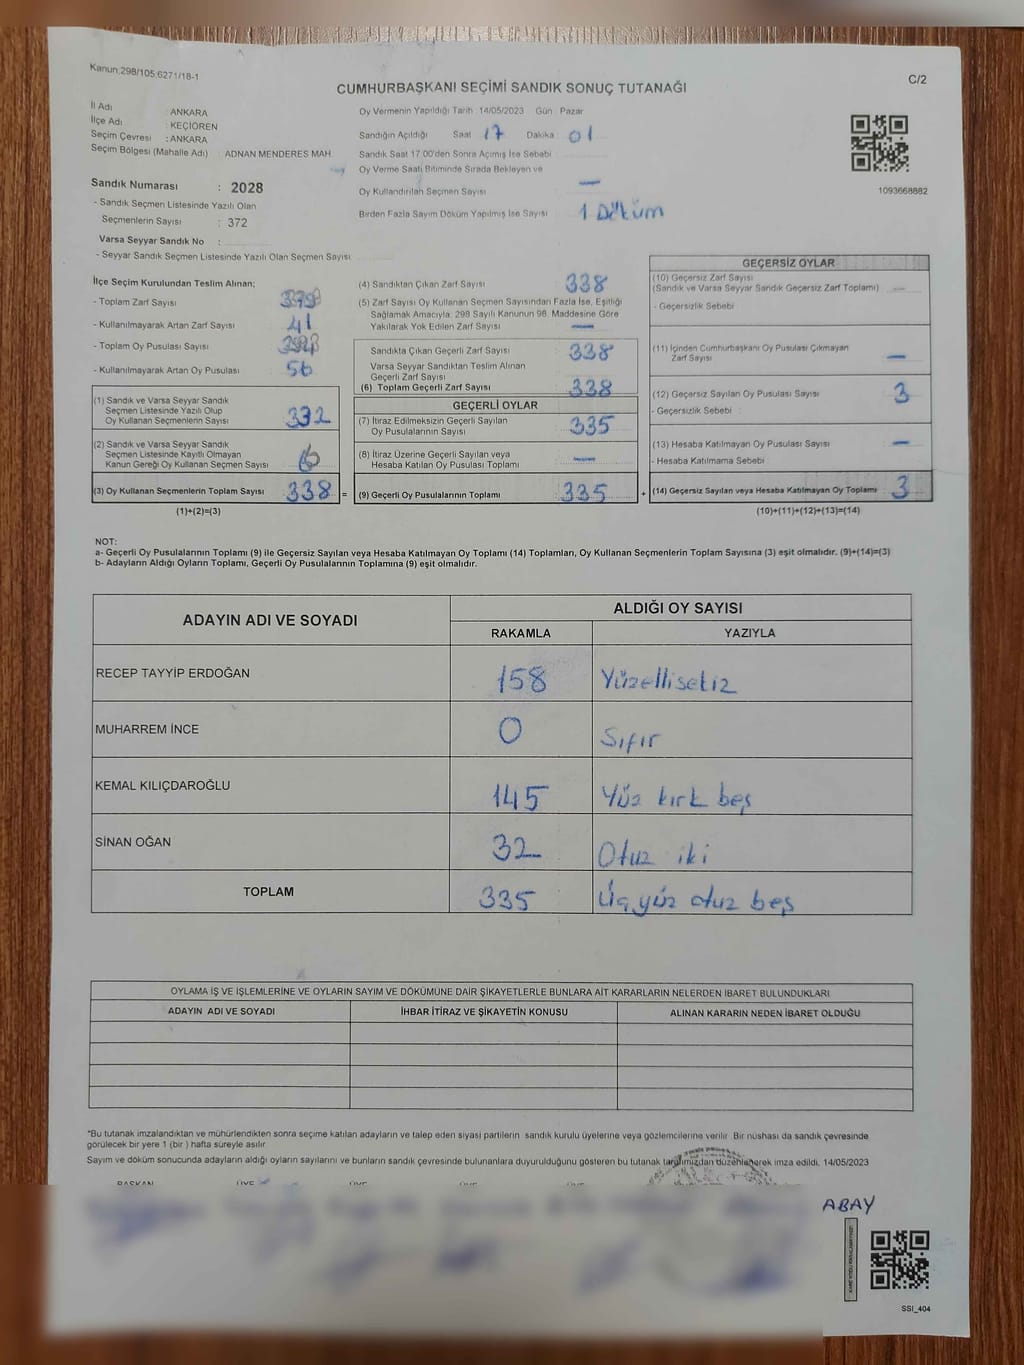 Kanun,298/105,6271/18-1
C/2
CUMHURBAŞKANI SEÇİMİ SANDIK SONUÇ TUTANAĞI
İl Adı : ANKARA
İlçe Adı : KEÇİÖREN
Seçim Çevresi : ANKARA
Seçim Bölgesi (Mahalle Adı) : ADNAN MENDERES MAH.
Sandık Numarası : 2028
- Sandık Seçmen Listesinde Yazılı Olan
Seçmenlerin Sayısı : 372
Varsa Seyyar Sandık No :
- Seyyar Sandık Seçmen Listesinde Yazılı Olan Seçmen Sayısı
Oy Vermenin Yapıldığı Tarih 14/05/2023 Gün : Pazar
Sandığın Açıldığı Saat 17 Dakika : 01
Sandık Saat 17.00'den Sonra Açımış İse Sebebi
Oy Verme Saati Bitiminde Sırada Bekleyen ve
Oy Kullandırılan Seçmen Sayısı —
Birden Fazla Sayım Döküm Yapılmış İse Sayısı 1 Döküm
1093668882
İlçe Seçim Kurulundan Teslim Alınan;
- Toplam Zarf Sayısı
- Kullanılmayarak Artan Zarf Sayısı 41
- Toplam Oy Pusulası Sayısı
- Kullanılmayarak Artan Oy Pusulası 56
(1) Sandık ve Varsa Seyyar Sandık
Seçmen Listesinde Yazılı Olup
Oy Kullanan Seçmenlerin Sayısı 332
(2) Sandık ve Varsa Seyyar Sandık
Seçmen Listesinde Kayıtlı Olmayan
Kanun Gereği Oy Kullanan Seçmen Sayısı 6
(3) Oy Kullanan Seçmenlerin Toplam Sayısı 338 =
(1)+(2)=(3)
(4) Sandıktan Çıkan Zarf Sayısı 338
(5) Zarf Sayısı Oy Kullanan Seçmen Sayısından Fazla İse, Eşitliği
Sağlamak Amacıyla, 298 Sayılı Kanunun 98. Maddesine Göre
Yakılarak Yok Edilen Zarf Sayısı —
Sandıkta Çıkan Geçerli Zarf Sayısı 338
Varsa Seyyar Sandıktan Teslim Alınan
Geçerli Zarf Sayısı
(6) Toplam Geçerli Zarf Sayısı 338
GEÇERLİ OYLAR
(7) İtiraz Edilmeksizin Geçerli Sayılan
Oy Pusulalarının Sayısı 335
(8) İtiraz Üzerine Geçerli Sayılan veya
Hesaba Katılan Oy Pusulası Toplamı —
(9) Geçerli Oy Pusulalarının Toplamı 335 +
GEÇERSİZ OYLAR
(10) Geçersiz Zarf Sayısı
(Sandık ve Varsa Seyyar Sandık Geçersiz Zarf Toplamı) —
- Geçersizlik Sebebi
(11) İçinden Cumhurbaşkanı Oy Pusulası Çıkmayan
Zarf Sayısı —
(12) Geçersiz Sayılan Oy Pusulası Sayısı 3
- Geçersizlik Sebebi :
(13) Hesaba Katılmayan Oy Pusulası Sayısı —
- Hesaba Katılmama Sebebi
(14) Geçersiz Sayılan veya Hesaba Katılmayan Oy Toplamı 3
(10)+(11)+(12)+(13)=(14)
NOT:
a- Geçerli Oy Pusulalarının Toplamı (9) ile Geçersiz Sayılan veya Hesaba Katılmayan Oy Toplamı (14) Toplamları, Oy Kullanan Seçmenlerin Toplam Sayısına (3) eşit olmalıdır. (9)+(14)=(3)
b- Adayların Aldığı Oyların Toplamı, Geçerli Oy Pusulalarının Toplamına (9) eşit olmalıdır.
ADAYIN ADI VE SOYADI ALDIĞI OY SAYISI
RAKAMLA YAZIYLA
RECEP TAYYİP ERDOĞAN 158 Yüzellisekiz
MUHARREM İNCE 0 Sıfır
KEMAL KILIÇDAROĞLU 145 Yüz kırk beş
SİNAN OĞAN 32 Otuz iki
TOPLAM 335 Üçyüz otuz beş
OYLAMA İŞ VE İŞLEMLERİNE VE OYLARIN SAYIM VE DÖKÜMÜNE DAİR ŞİKAYETLERLE BUNLARA AİT KARARLARIN NELERDEN İBARET BULUNDUKLARI
ADAYIN ADI VE SOYADI İHBAR İTİRAZ VE ŞİKAYETİN KONUSU ALINAN KARARIN NEDEN İBARET OLDUĞU
*Bu tutanak imzalandıktan ve mühürlendikten sonra seçime katılan adayların ve talep eden siyasi partilerin sandık kurulu üyelerine veya gözlemcilerine verilir. Bir nüshası da sandık çevresinde
görülecek bir yere 1 (bir) hafta süreyle asılır.
Sayım ve döküm sonucunda adayların aldığı oyların sayılarını ve bunların sandık çevresinde bulunanlara duyurulduğunu gösteren bu tutanak tarafımızdan düzenlenerek imza edildi. 14/05/2023
BAŞKAN ÜYE ÜYE ÜYE ÜYE
ABAY
SSI_404